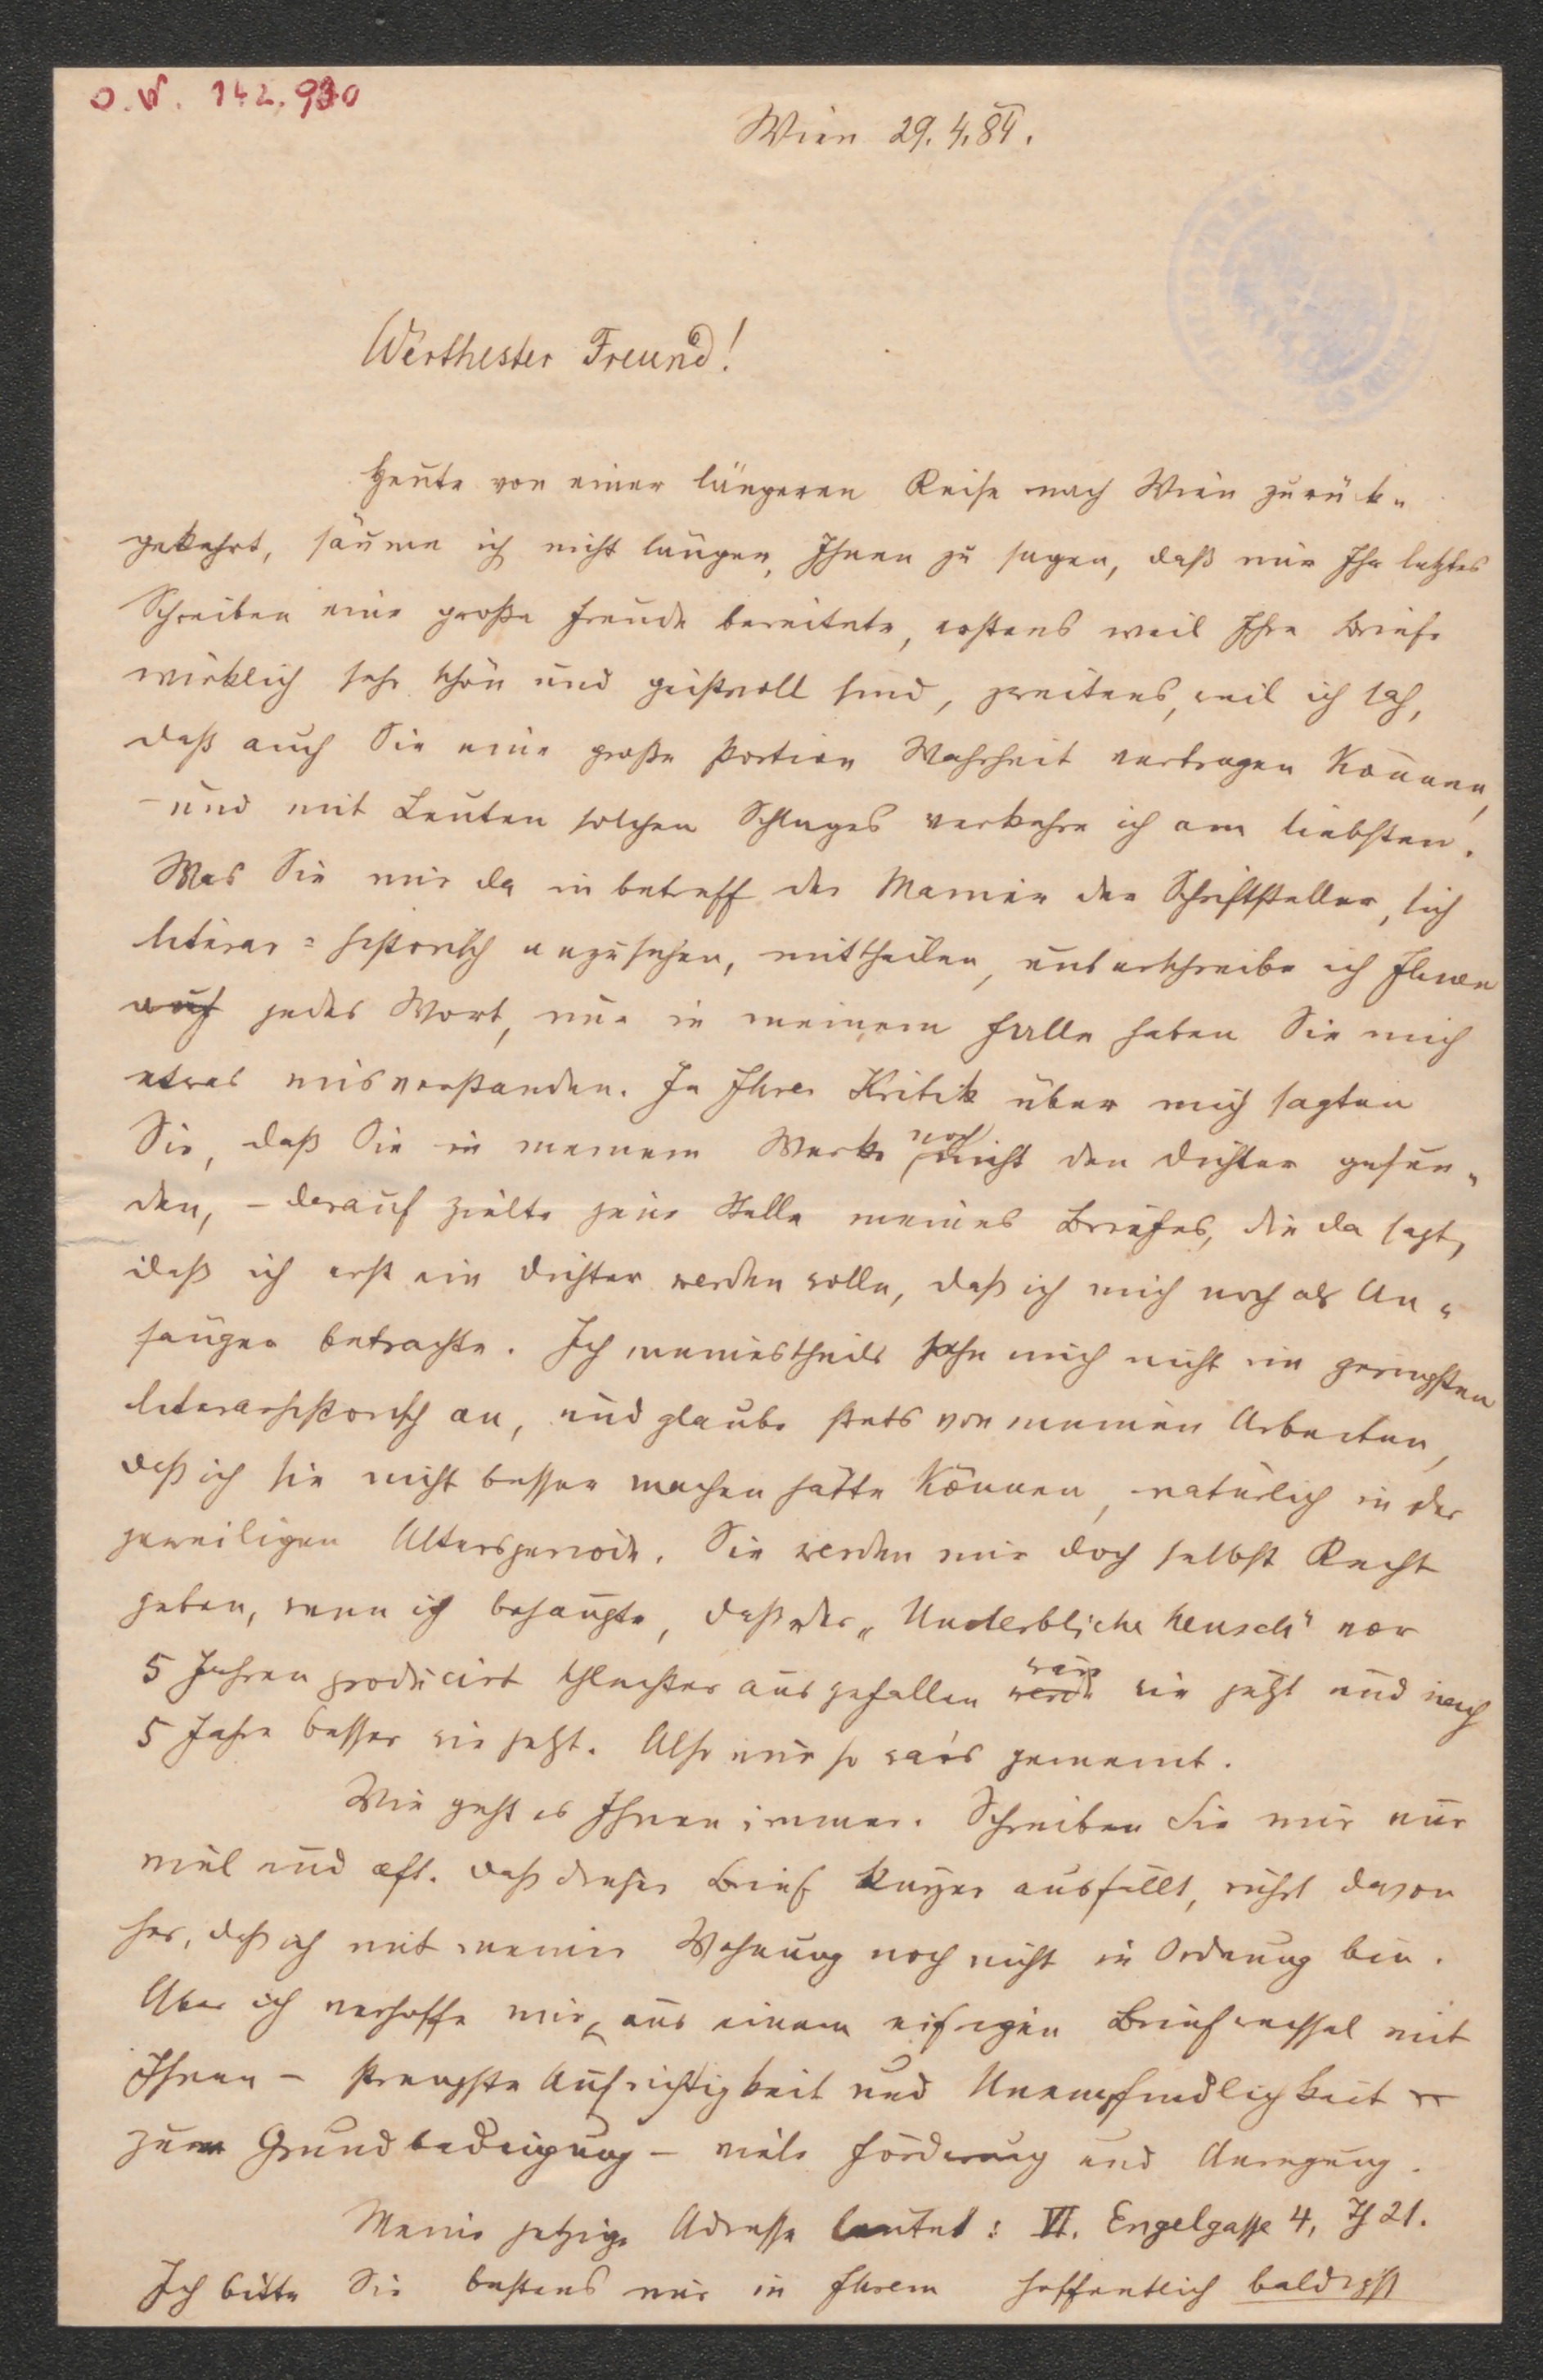 O.N. 142.930
Wien 29.4.84.
Werthester Freund!
Heute von einer längeren Reise nach Wien zurück-
gekehrt, säume ich nicht länger, Ihnen zu sagen, daß mir Ihr letztes
Schreiben eine große Freude bereitete, erstens weil Ihre Briefe
wirklich sehr schön und geistvoll sind, zweitens, weil ich sah,
daß auch Sie eine große Portion Wahrheit vertragen können,
– und mit Leuten solchen Schlages verkehre ich am liebsten!
Was Sie mir da in betreff der Manier der Schriftsteller, sich
literar-historisch anzusehen, mittheilen, unterschreibe ich Ihnen
auf jedes Wort, nur in meinem Falle haben Sie mich
etwas misverstanden. In Ihrer Kritik über mich sagten
Sie, daß Sie in meinem Werke noch nicht den Dichter gefun-
den, – darauf zielte jene Stelle meines Briefes, die da sagt,
daß ich erst ein Dichter werden wolle, daß ich mich noch als An-
fänger betrachte. Ich meinestheils sehe mich nicht im geringsten
literarhistorisch an, und glaube stets von meinen Arbeiten,
daß ich sie nicht besser machen hätte können, natürlich in der
jeweiligen Altersperiode. Sie werden mir doch selbst Recht
geben, wenn ich behaupte, daß der „Unsterbliche Mensch" vor
5 Jahren producirt schlechter ausgefallen werde wäre wie jetzt und nach
5 Jahre besser wie jetzt. Also nur so war's gemeint.
Wie geht es Ihnen immer. Schreiben Sie mir nur
viel und oft. Daß dieser Brief kurzer ausfällt, rührt davon
her, daß ich mit meiner Wohnung noch nicht in Ordnung bin.
Aber ich verhoffe mir, aus einem eifrigen Briefwechsel mit
Ihnen – strengste Aufrichtigkeit und Unempfindlichkeit
zur Grundbedingung – viele Förderung und Anregung.
Meine jetzige Adresse lautet: VI. Engelgasse 4, Th 21.
Ich bitte Sie bestens mir in Ihrem hoffentlich baldigst